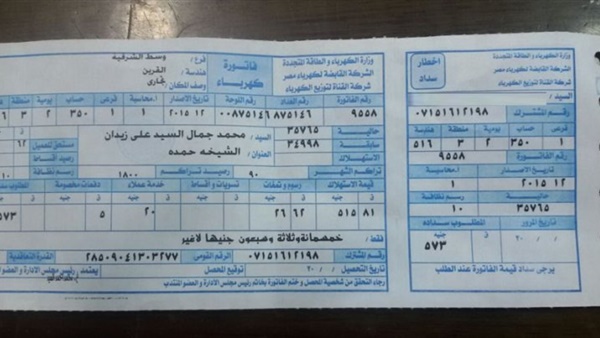 اخطار
سداد
وزارة الكهرباء و الطاقة المتجددة
الشركة القابضة لكهرباء مصر
شركة القناة لتوزيع الكهرباء
السيد /
رقم المشترك ٠٧١٥١٦١٢١٩٨
فرعى حساب يومية منطقة هندسة
١ ٣٥٠ ٢ ٣ ٥١٦
رقم الفاتورة ٩٥٥٨
تاريخ الاصدار ا. محاسبة
٢٠١٥ ١٢ ١
حالية رسم نظافة
٣٥٧٦٥ ١٠
تاريخ المرور المطلوب سداده
٢٠ / / ق جنيه
٥٧٣
يرجى سداد قيمة الفاتورة عند الطلب
وزارة الكهرباء و الطاقة المتجددة
الشركة القابضة لكهرباء مصر
شركة القناة لتوزيع الكهرباء
فاتورة
كهرباء
فرع / وسط الشرقية
هندسة / القرين
وصف المكان / تجارى
رقم الفاتورة رقم العداد رقم اللوحة تاريخ الاصدار ا. محاسبة فرعى حساب يومية منطقة
٩٥٥٨ ٨٧٥١٤٦ ٠٠٨٧٥١٤٦ ٢٠١٥ ١٢ ١ ١ ٣٥٠ ٢ ٣
حالية ٣٥٧٦٥ السيد / محمد جمال السيد على زيدان
سابقة ٣٤٩٩٨ العنوان / الشيخه حمده
الاستهلاك
مستحق للعميل
رصيد اقساط
تراكم الشهر ٩٠ رصيد تراكم ١٨٠٠ رسم نظافة ١٠
قيمة الاستهلاك رسوم و تمغات تسويات و اقساط خدمة عملاء دفعات مخصومة
٥١٥ ٨١ ٢٦ ٦٢ ٢٠ ٥ ٥٧٣
فقط / خمسمائة وثلاثة وسبعون جنيها لاغير
رقم المشترك ٠٧١٥١٦١٢١٩٨ الرقم القومى ٢٨٥٠٩٠٤١٣٠٣٢٧٧ القدرة التعاقدية
تاريخ التحصيل / / ٢٠ توقيع المحصل يعتمد ، رئيس مجلس الادارة و العضو المنتدب
رجاء التحقق من شخصية المحصل و ختم الفاتورة بخاتم رئيس مجلس الادارة و العضو المنتدب